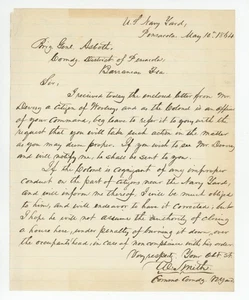 U.S. Navy Yard,
Pensacola May 10th 1864
Brig Genl Asboth,
Comdg District of Pensacola
Barrancas Fla
Sir,
I received to day the enclosed letter from Mr
a citizen of and as the Colonel is an officer
of your command, beg leave to refer it to you with the
request that you will take such action on the matter
as you may deem proper. If you wish to see Mr
and will notify me, he shall be sent to you.
If the Colonel is cognizant of any improper
conduct on the part of citizens near the Navy Yard,
and will inform me thereof, I will be much obliged
to him, and will endeavor to have it corrected; but
I hope he will not assume the authority of closing
a house here, under penalty of burning it down, over
the occupants head, in case of noncompliance with his order
Very respectf. Your Obt. St.
Smith
Comdg